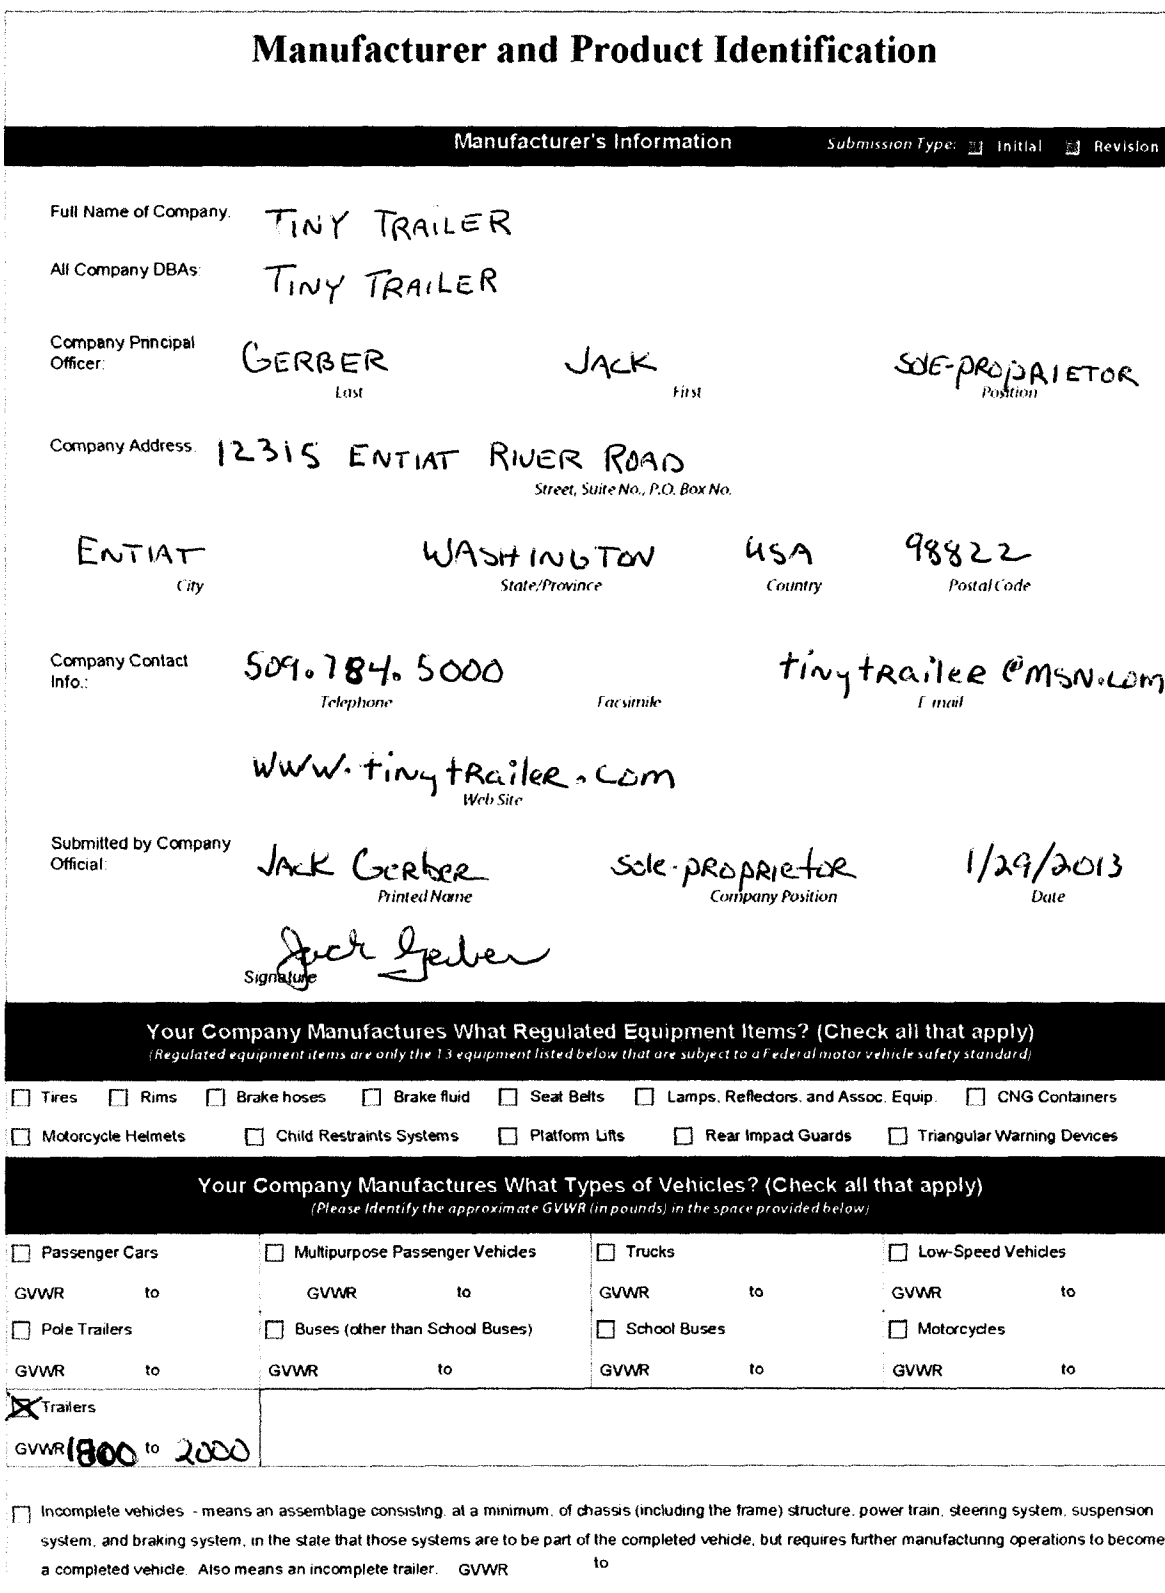 Manufacturer and Product Identification
Manufacturer's Information Submission Type: Initial Revision
Full Name of Company: TINY TRAILER
All Company DBAs: TINY TRAILER
Company Principal Officer: GERBER JACK SOLE-PROPRIETOR
Last First Position
Company Address: 12315 ENTIAT RIVER ROAD
Street, Suite No., P.O. Box No.
ENTIAT WASHINGTON USA 98822
City State/Province Country Postal Code
Company Contact Info.: 509.784.5000 tinytrailer@msn.com
Telephone Facsimile E-mail
www.tinytrailer.com
Web Site
Submitted by Company Official: Jack Gerber Sole-proprietor 1/29/2013
Printed Name Company Position Date
Jack Gerber
Signature
Your Company Manufactures What Regulated Equipment Items? (Check all that apply)
(Regulated equipment items are only the 13 equipment listed below that are subject to a Federal motor vehicle safety standard)
Tires Rims Brake hoses Brake fluid Seat Belts Lamps, Reflectors, and Assoc. Equip. CNG Containers
Motorcycle Helmets Child Restraints Systems Platform Lifts Rear Impact Guards Triangular Warning Devices
Your Company Manufactures What Types of Vehicles? (Check all that apply)
(Please Identify the approximate GVWR (in pounds) in the space provided below)
Passenger Cars Multipurpose Passenger Vehicles Trucks Low-Speed Vehicles
GVWR to GVWR to GVWR to GVWR to
Pole Trailers Buses (other than School Buses) School Buses Motorcycles
GVWR to GVWR to GVWR to GVWR to
Trailers
GVWR 1800 to 2000
Incomplete vehicles - means an assemblage consisting, at a minimum, of chassis (including the frame) structure, power train, steering system, suspension
system, and braking system, in the state that those systems are to be part of the completed vehicle, but requires further manufacturing operations to become
a completed vehicle. Also means an incomplete trailer. GVWR to